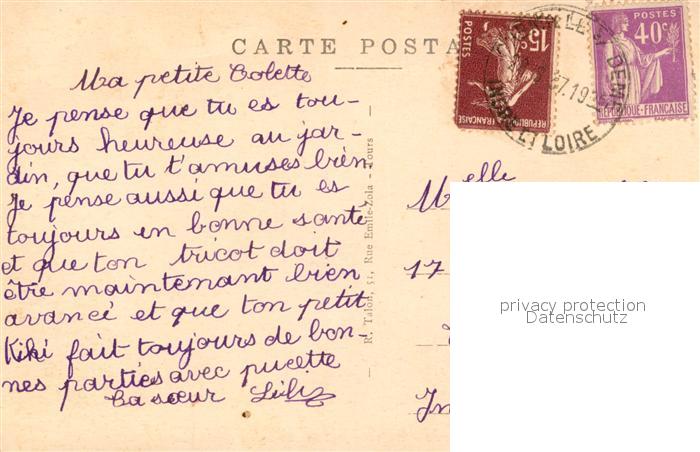 CARTE POSTA
Ma petite Colette
Je pense que tu es tou-
jours heureuse au jar-
din, que tu t'amuses bien
Je pense aussi que tu es
toujours en bonne santé
et que ton tricot doit
être maintenant bien
avancé et que ton petit
Kiki fait toujours de bon-
nes parties avec pucette
Ta sœur
R. Talon, 51, Rue Emile-Zola - Tours
15c
POSTES
REPUBLIQUE FRANCAISE
POSTES
40c
REPUBLIQUE-FRANCAISE
INDRE ET LOIRE
Melle
17
privacy protection
Datenschutz